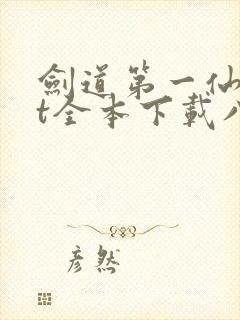 劍道第一仙
t全本下載八
彦然